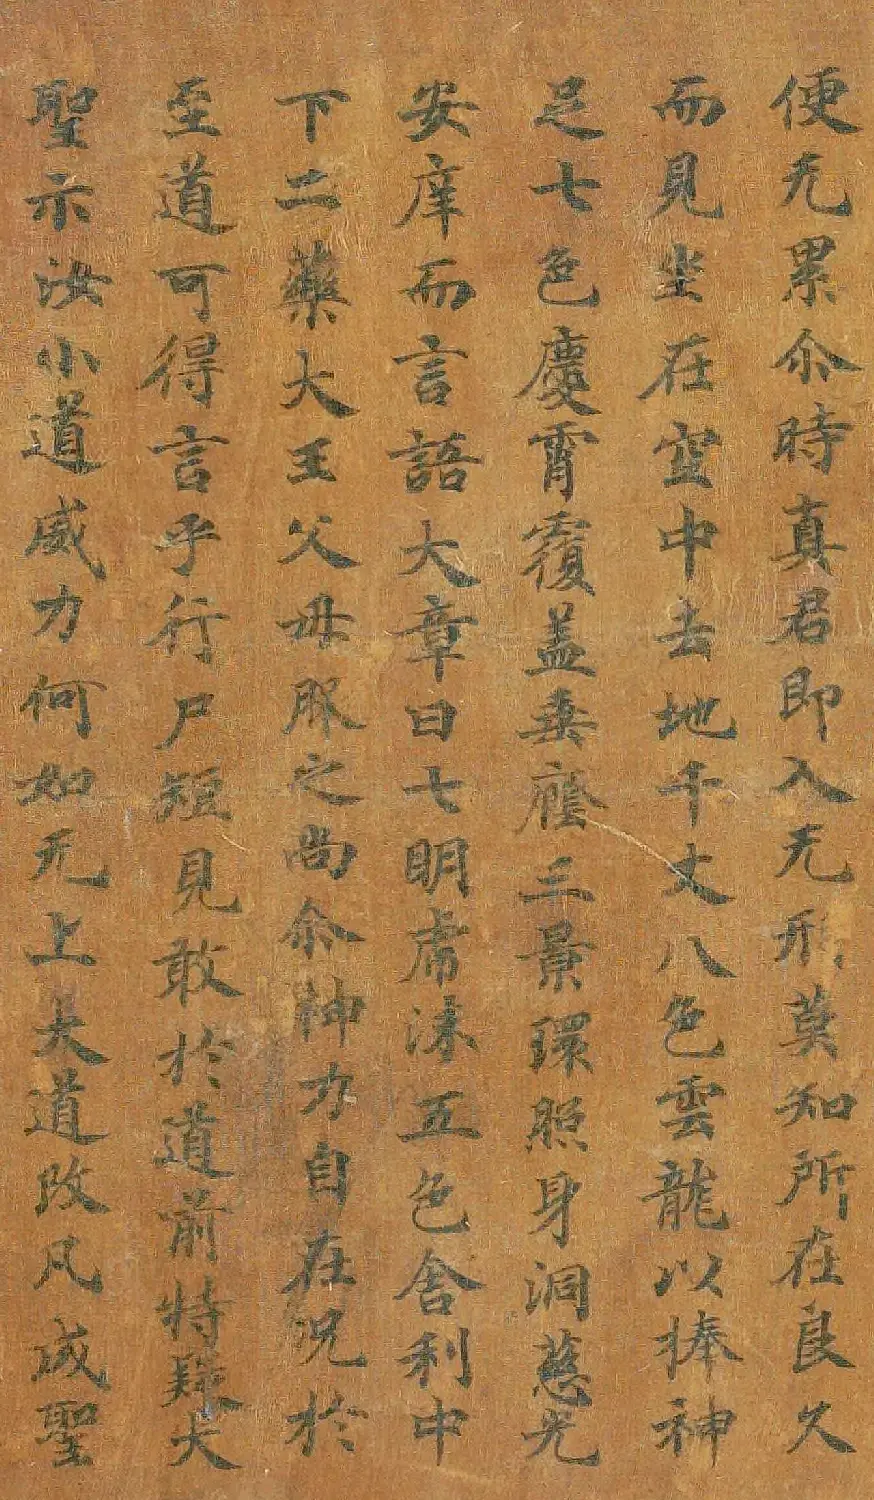 便无累尒時真君即入无形莫知所在良久
而見坐在空中去地千丈八色雲龍以捧神
足七色慶霄覆盖垂癊三景環照身洞慈光
安庠而言語大章曰七明膚溱五色舍利中
下二藥大王父母服之尚尒神力自在況於
至道可得言乎行尸短見敢於道前特疑大
聖示汝小道威力何如无上大道改凡成聖